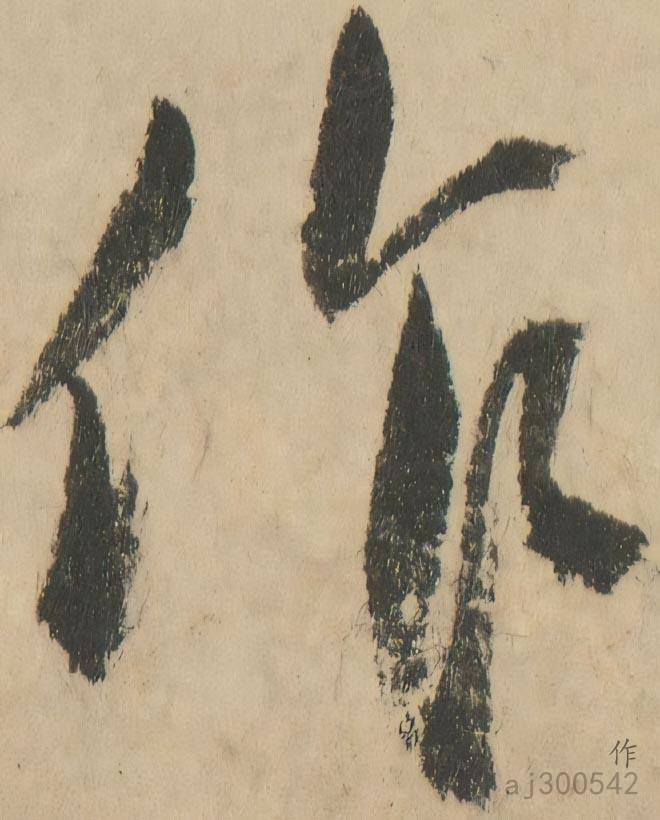 作
作
aj300542